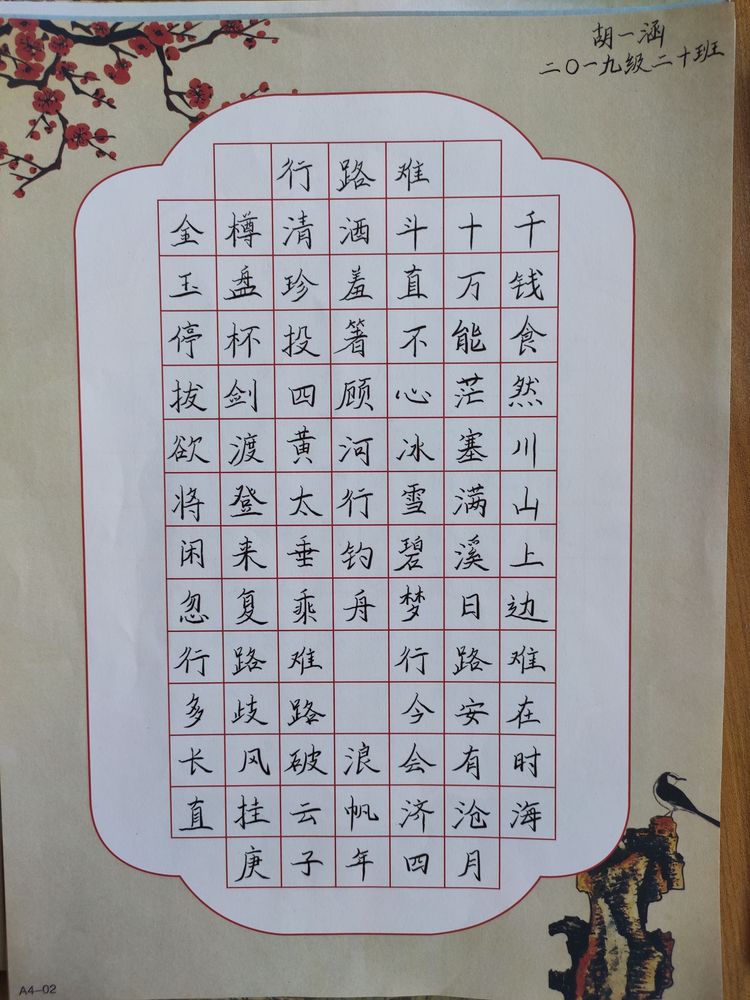 胡一涵
二〇一九级二十班
行路难
金樽清酒斗十千
玉盘珍羞直万钱
停杯投箸不能食
拔剑四顾心茫然
欲渡黄河冰塞川
将登太行雪满山
闲来垂钓碧溪上
忽复乘舟梦日边
行路难 行路难
多歧路 今安在
长风破浪会有时
直挂云帆济沧海
庚子年四月
A4-02